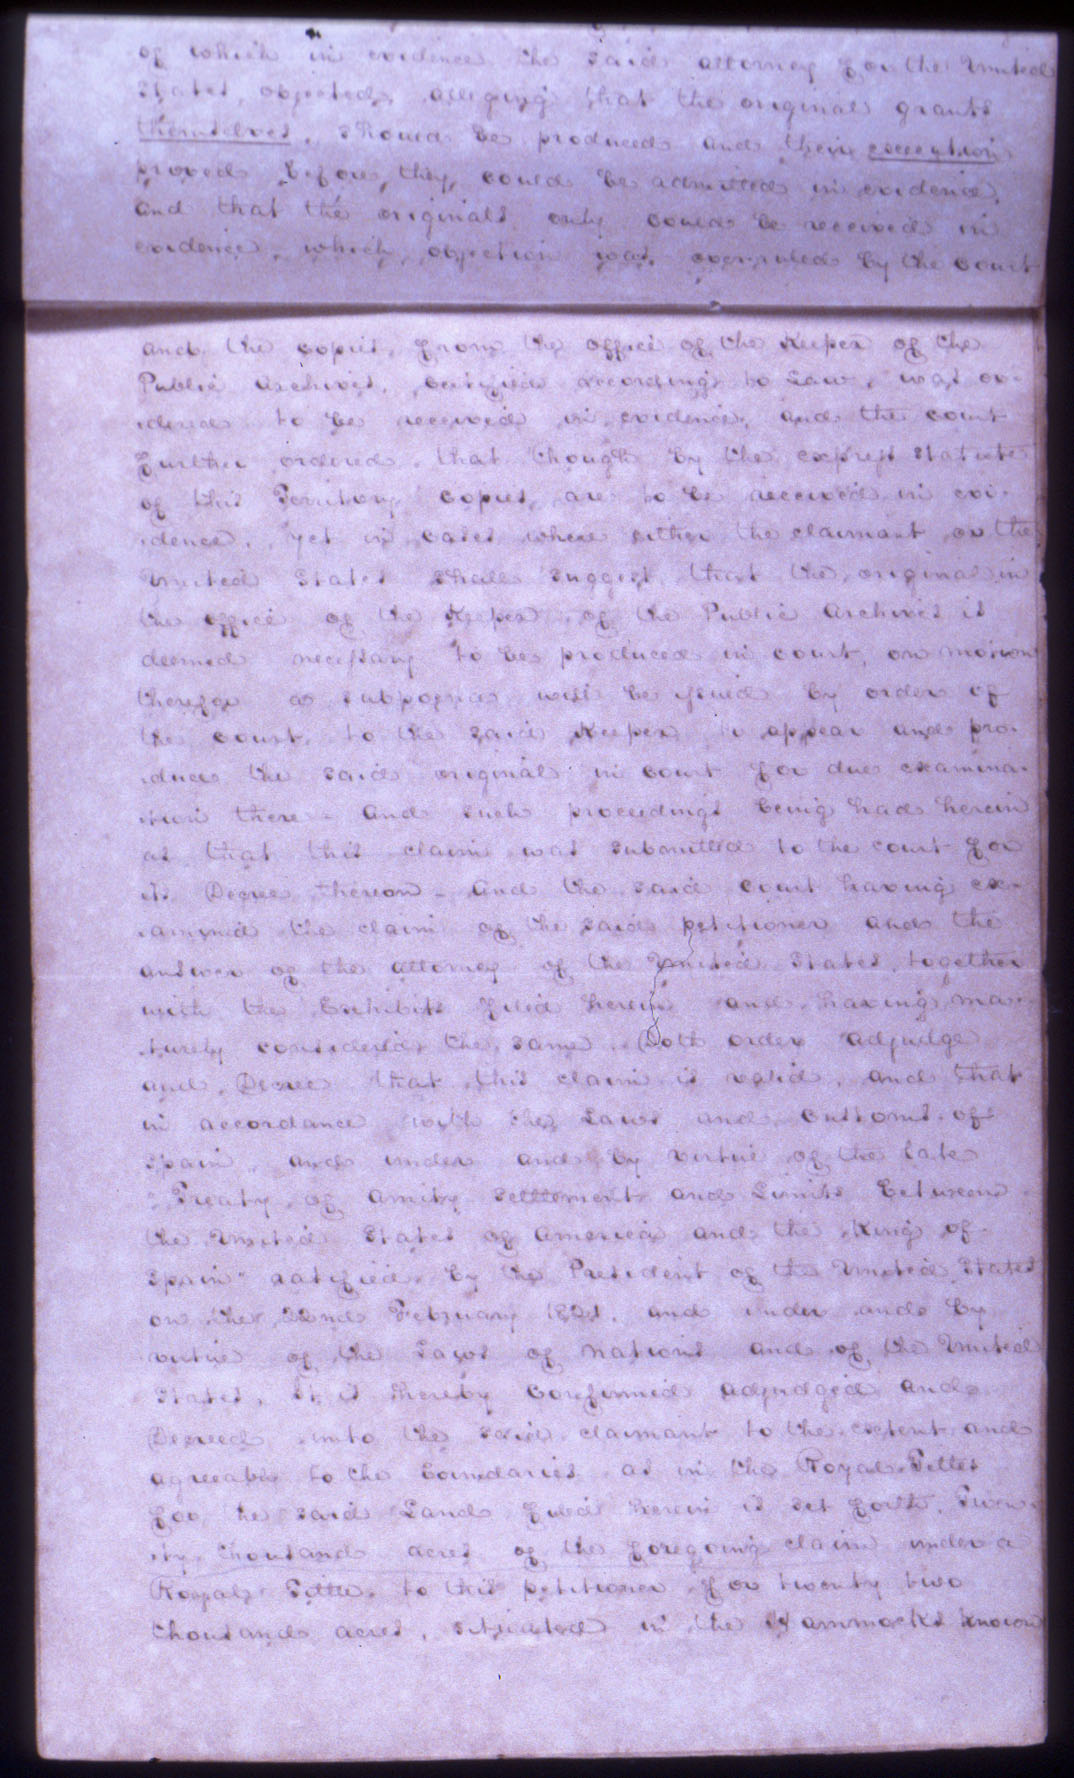 of which in evidence the said attorney for the United
States, objected, alleging that the original grants
themselves, should be produced and their execution
proved before they could be admitted in evidence,
and that the originals only could be received in
evidence, which objection was overruled by the court
and the copies, from the office of the Keeper of the
Public Archives, certified according to Law, was or-
dered to be received in evidence, and the court
further ordered, that though by the express statute
of this Territory copies, are to be received in evi-
dence, yet in cases where either the claimant or the
United States shall suggest that the original in
the office of the Keeper of the Public Archives is
deemed necessary to be produced in court, on motion
therefor a subpoena will be issued by order of
the court, to the said Keeper, to appear and pro-
duce the said original in court for due examina-
tion there - and such proceedings being had herein
as that this claim was submitted to the court for
its Decree thereon - and the said court having ex-
amined the claim of the said petitioner and the
answer of the attorney of the United States, together
with the Exhibits filed herein and having, ma-
turely considered the same. Doth order adjudge
and Decree that this claim is valid, and that
in accordance with the Laws and customs of
Spain, and under and by virtue of the late
"Treaty of amity settlement and Limits between
the United States of America and the King of
Spain" ratified by the President of the United States
on the 22nd February 1821, and under and by
virtue of the Laws of nations and of the United
States, It is hereby confirmed adjudged and
Decreed unto the said claimant to the extent and
agreeable to the boundaries as in the Royal Title
for the said Land filed herein is set forth. Twen-
ty thousand acres of the foregoing claim under a
Royal Title, to this petitioner for twenty two
thousand acres, situated in the Hammocks known